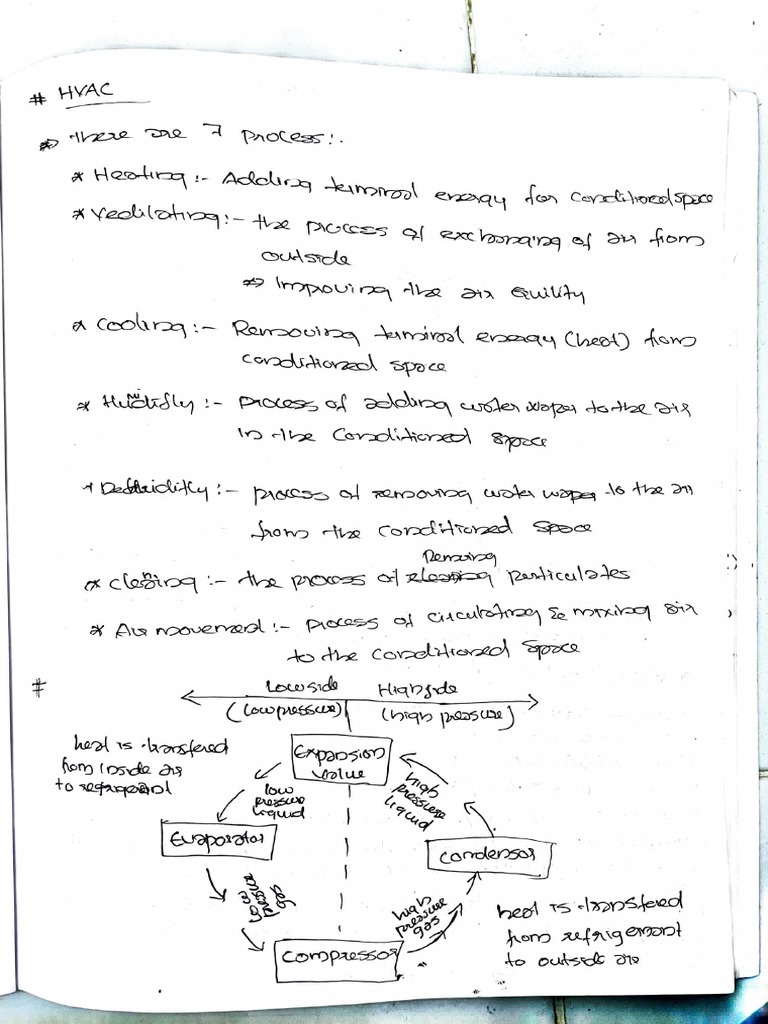 # HVAC
=> There are 7 process:.
* Heating :- Adding terminal energy for conditioned space
* Vedilating :- the process of exchanging of air from
outside
=> Improving the air Quility
* Cooling :- Removing terminal energy (heat) from
conditioned space
* Humidifly :- process of adding water vaper to the air
in the Conditioned space
* :- process of removing water vaper to the air
from the conditioned space
Removing
* Clening :- the process of particulates
* Air movemed :- process of circulating & mixing air
to the conditioned space
#
Low side High side
(low pressure) (high pressure)
heat is transfered
from inside air
to refrigerant
Expansion
Value
low
pressure
liquid
high
pressure
liquid
Evaporator
Condensor
low
pressure
gas
high
pressure
gas
heat is transfered
from refrigemant
to outside air
Compressor